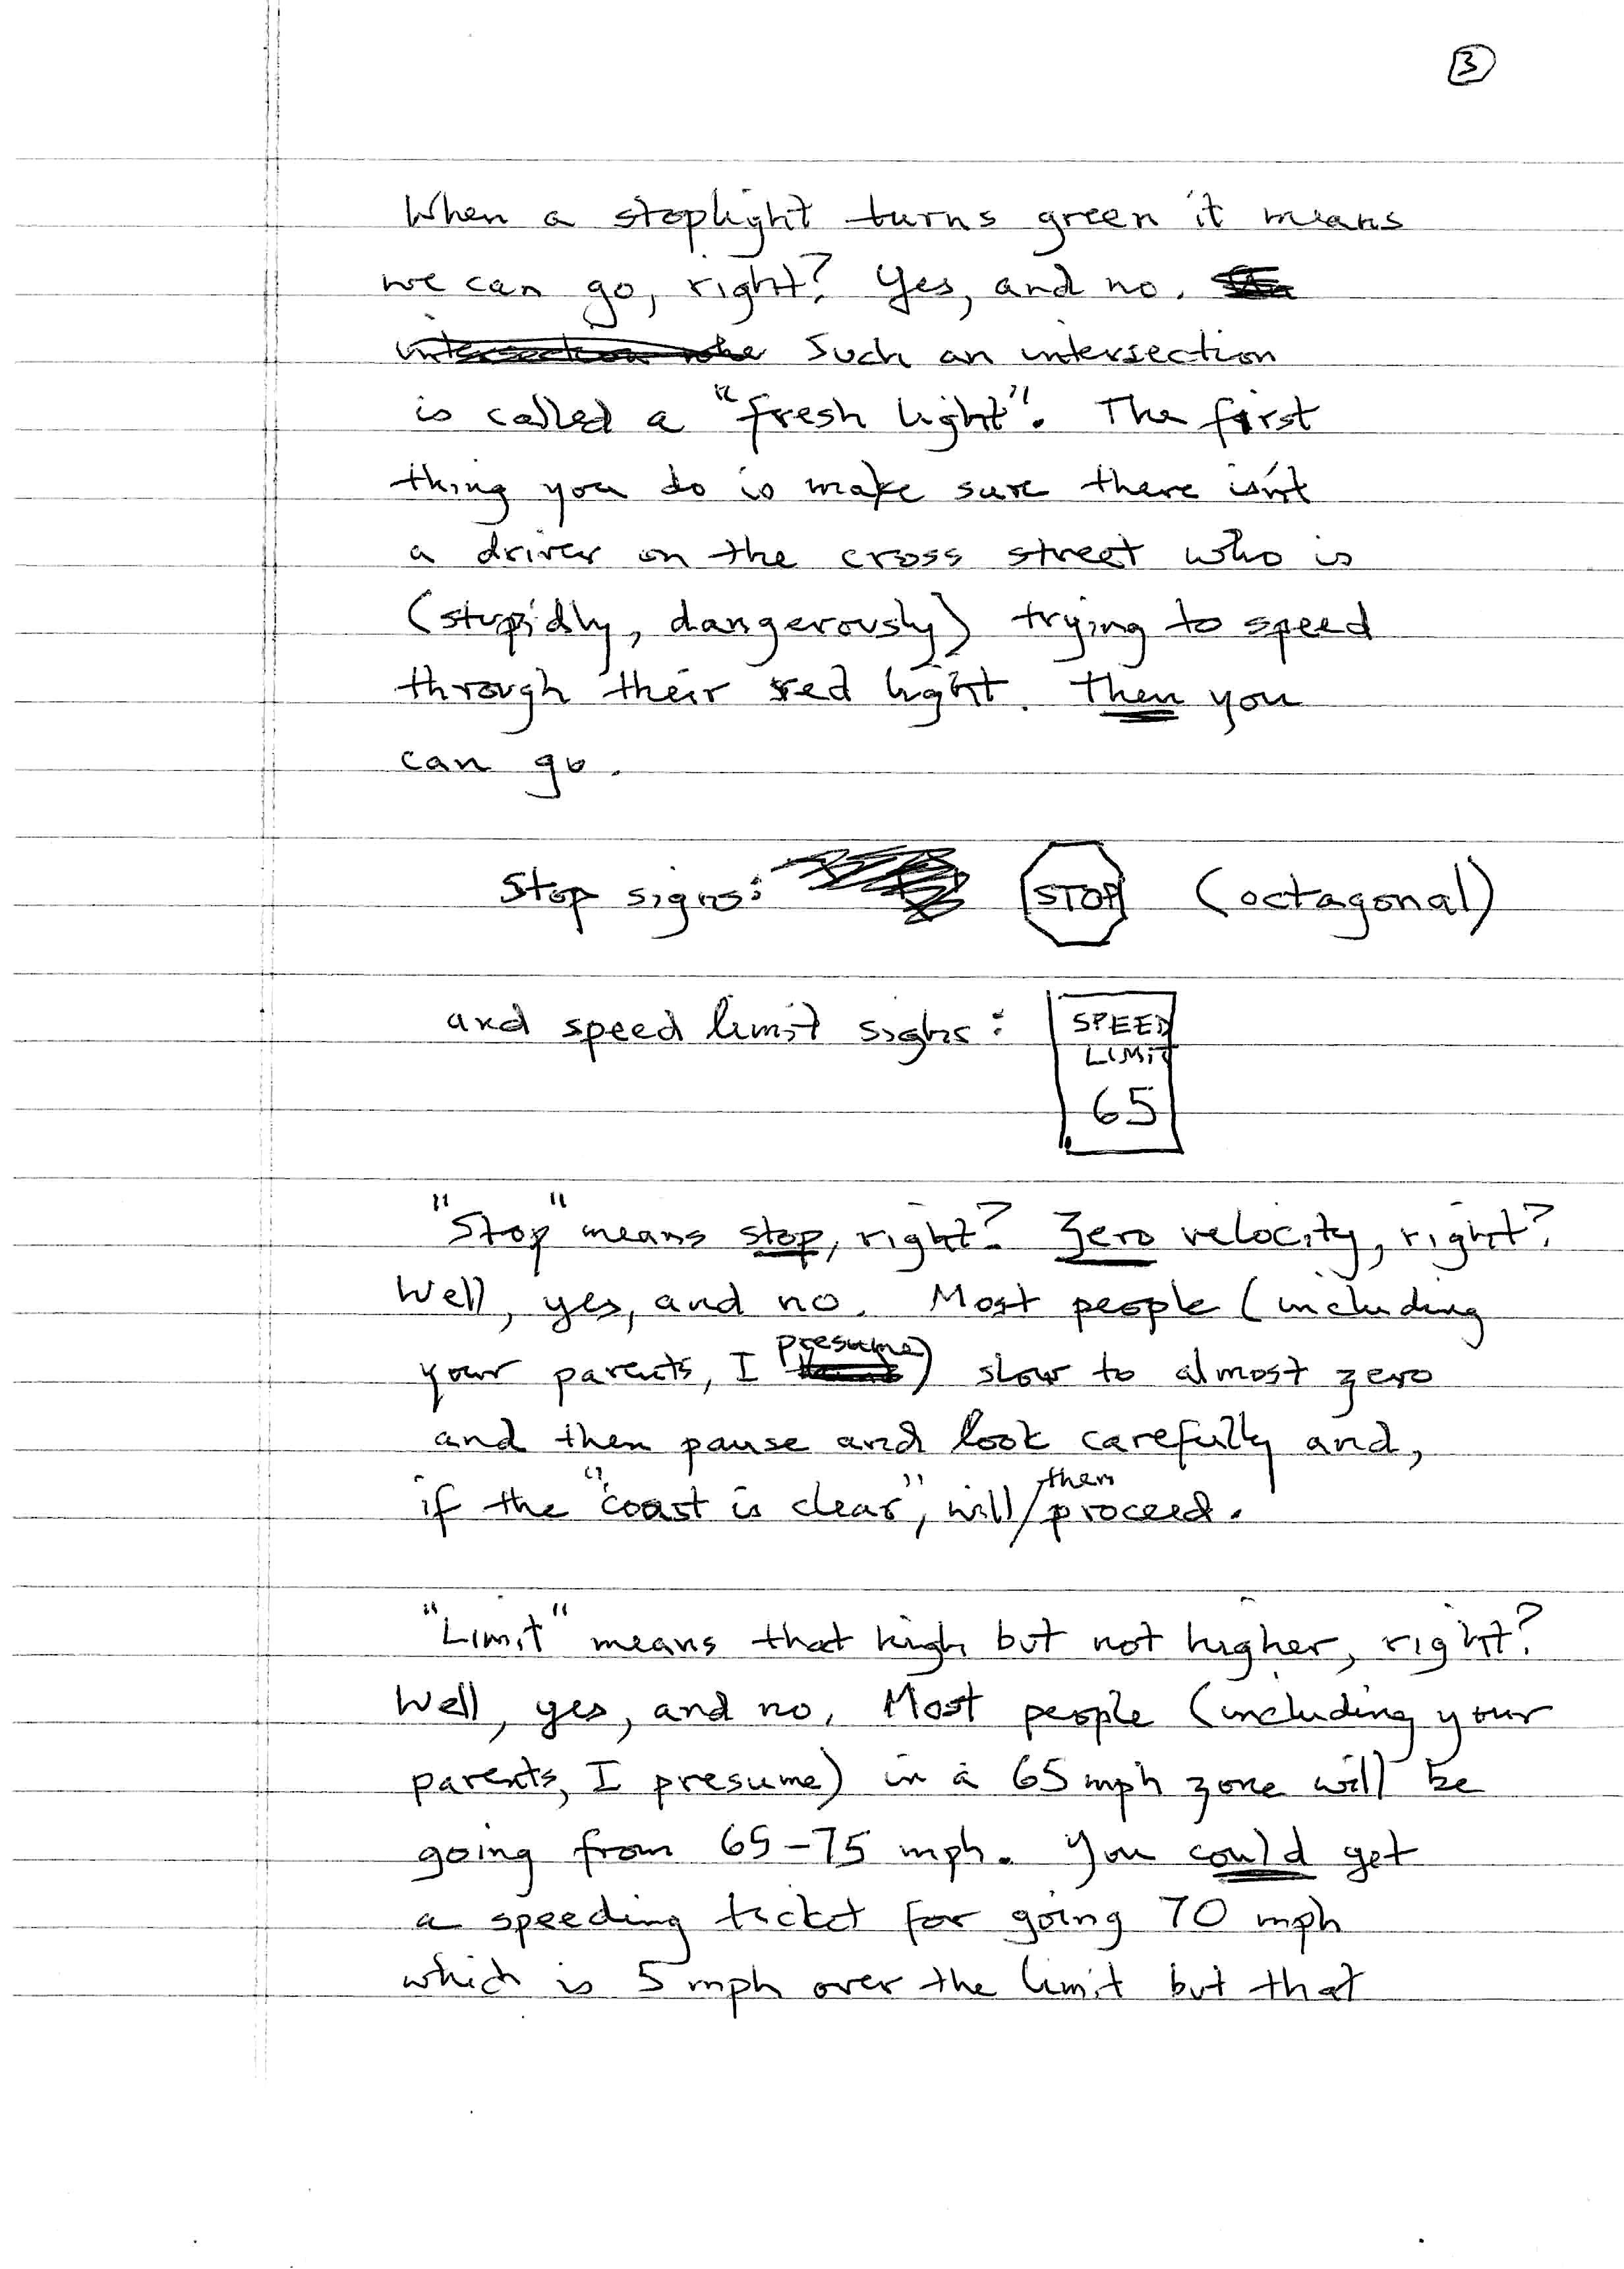 3
When a stoplight turns green it means
we can go, right? Yes, and no.
Such an intersection
is called a "fresh light". The first
thing you do is make sure there isn't
a driver on the cross street who is
(stupidly, dangerously) trying to speed
through their red light. Then you
can go.
Stop signs: STOP (octagonal)
and speed limit signs: SPEED
LIMIT
65
"Stop" means stop, right? Zero velocity, right?
Well, yes, and no. Most people (including
your parents, I presume) slow to almost zero
and then pause and look carefully and,
if the "coast is clear", will then proceed.
"Limit" means that high but not higher, right?
Well, yes, and no. Most people (including your
parents, I presume) in a 65 mph zone will be
going from 65-75 mph. You could get
a speeding ticket for going 70 mph
which is 5 mph over the limit but that